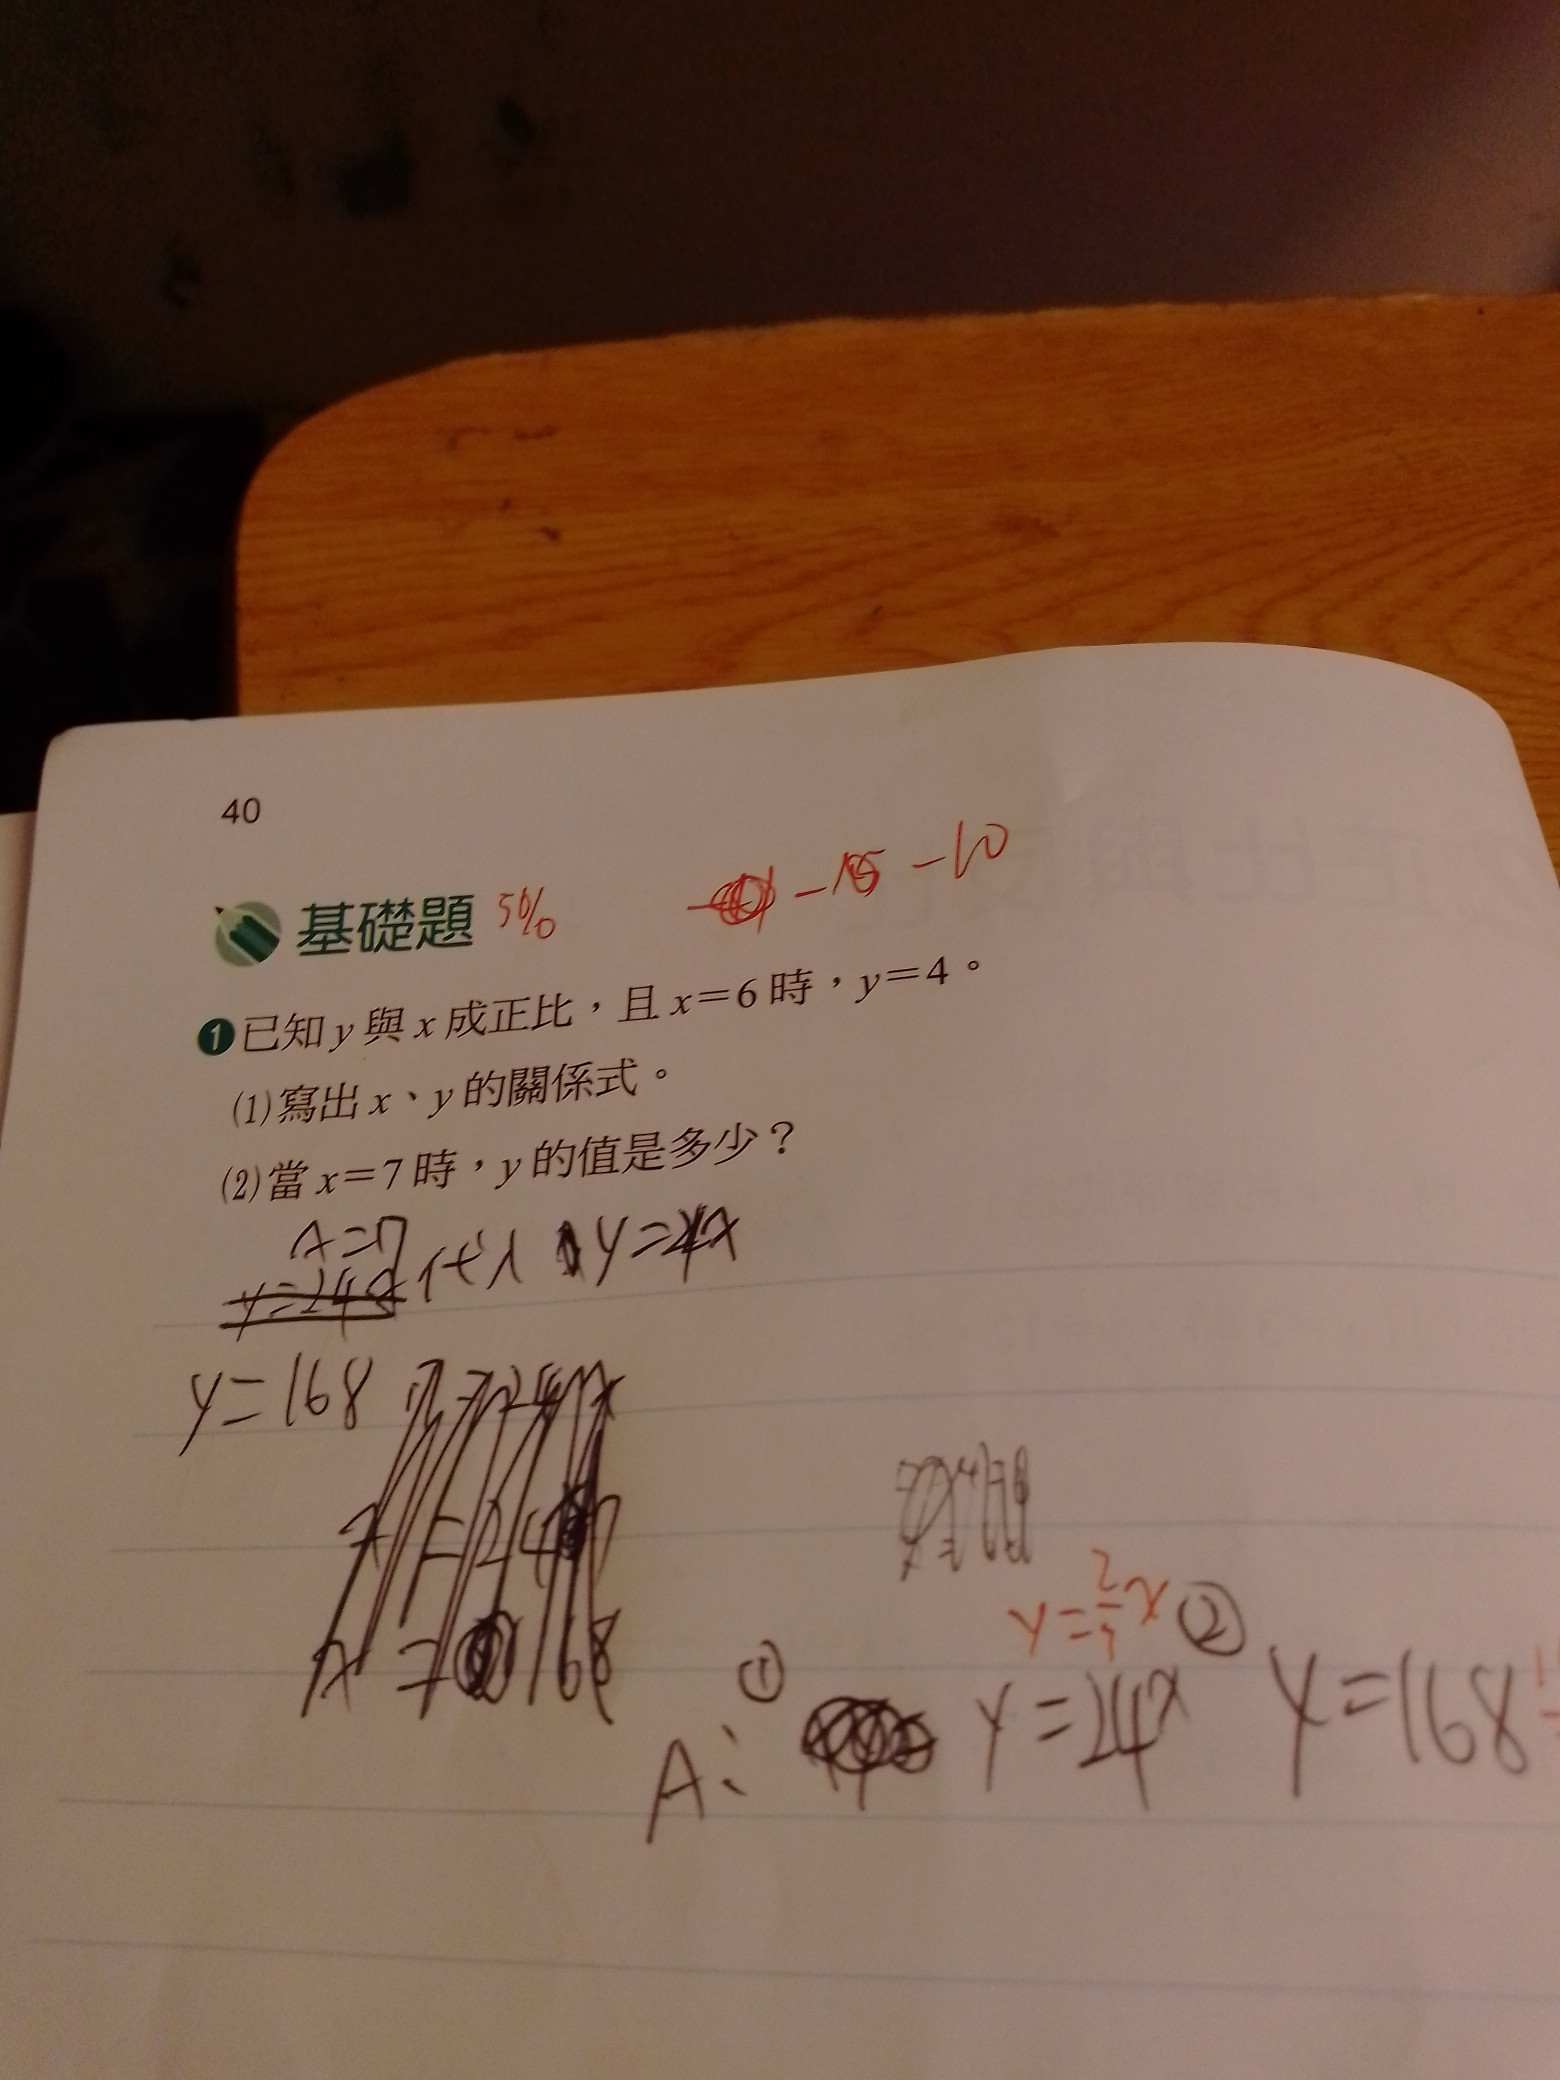 40
基礎題 50% -15 -10
❶已知y與x成正比，且x=6時，y=4。
(1)寫出x、y的關係式。
(2)當x=7時，y的值是多少？
x=7
代入 y=24x
y=168
y=2/3x
A: ① y=24x ② y=168